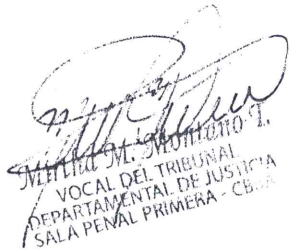 Mirtha M. Montaño T.
VOCAL DEL TRIBUNAL
DEPARTAMENTAL DE JUSTICIA
SALA PENAL PRIMERA - CBBA